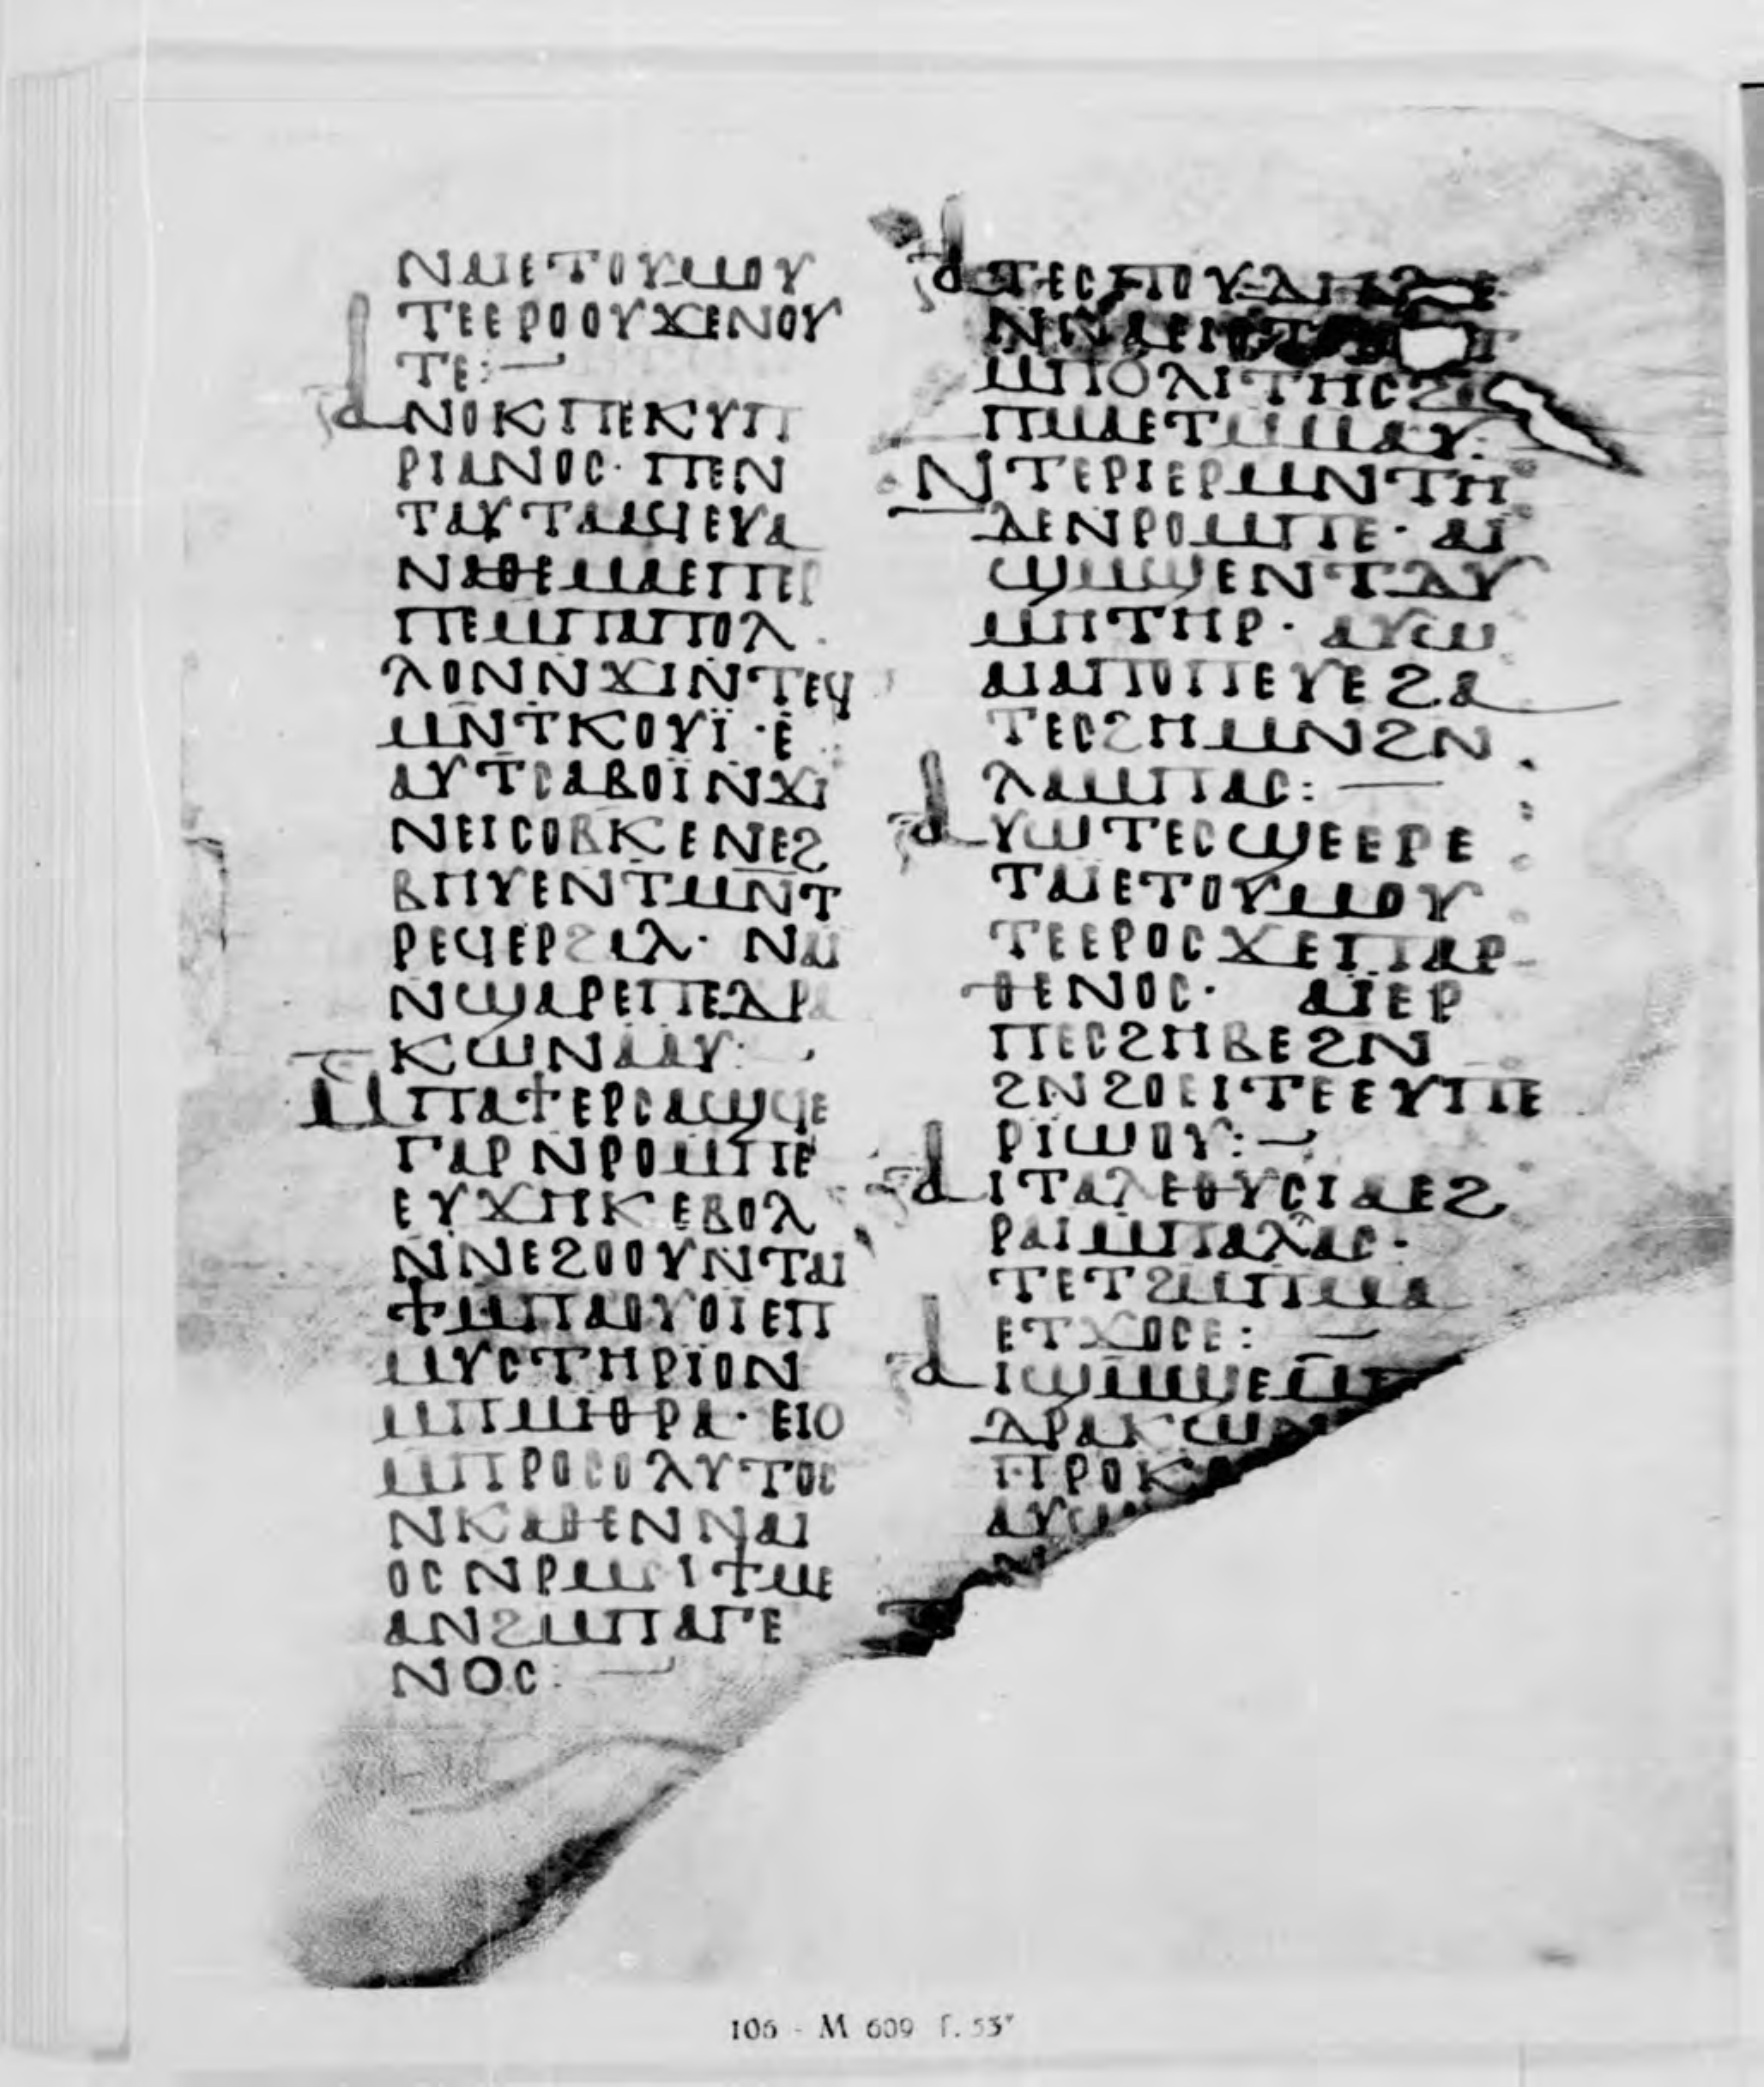 ⲚⲀⲒⲈⲦⲞⲨⲘⲞⲨ
ⲦⲈⲈⲢⲞⲞⲨϪⲈⲚⲞⲨ
ⲦⲈ:—
ⲀⲚⲞⲔⲠⲈⲔⲨⲠ
ⲢⲒⲀⲚⲞⲤ· ⲠⲈⲚ
ⲦⲀⲨⲦⲀⲀϤⲈⲨⲀ
ⲚⲀⲐⲈⲘⲀⲈⲠⲈⲢ
ⲠⲈⲘⲠⲀⲠⲞⲖ
ⲖⲞⲚⲚϪⲒⲚⲦⲈϤ
ⲘⲚⲦⲔⲞⲨⲒ̈·Ⲉ
ⲀⲨⲦⲤⲀⲂⲞⲒ̈ⲚϪⲒ
ⲚⲈⲒⲤⲞⲂⲔⲈⲚⲈϨ
ⲂⲎⲨⲈⲚⲦⲘⲚⲦ
ⲢⲈϤⲈⲢϨⲀⲖ· ⲚⲀⲒ
ⲚϢⲀⲢⲈⲠⲈⲆⲢⲀ
ⲔⲰⲚⲀⲀⲨ:
ⲘⲠⲀϮⲈⲢⲤⲀϢϤⲈ
ⲄⲀⲢⲚⲢⲞⲘⲠⲈ
ⲈⲨϪⲎⲔⲈⲂⲞⲖ
ⲚⲚⲈϨⲞⲞⲨⲚⲦⲀⲒ
ϮⲘⲠⲀⲞⲨⲞⲒⲈⲠ
ⲘⲨⲤⲦⲎⲢⲒⲞⲚ
ⲘⲠⲘⲒⲐⲢⲀ· ⲈⲒⲞ
ⲘⲠⲢⲞⲤⲞⲖⲨⲦⲞⲤ
ⲚⲔⲀⲐⲈⲚⲚⲀⲒ
ⲞⲤⲚⲢⲘⲤⲒϮⲘⲈ
ⲀⲚϨⲘⲠⲀⲄⲈ
ⲚⲞⲤ:—
ⲀⲦⲈⲤⲠⲞⲨⲆⲎ
ⲘⲠⲞⲖⲒⲦⲎⲤϨⲘ
ⲠⲘⲀⲈⲦⲘⲘⲀⲨ:
ⲚⲦⲈⲢⲒⲈⲢⲘⲚⲦⲎ
ⲆⲈⲚⲢⲞⲘⲠⲈ· ⲀⲒ̈
ϢⲘϢⲈⲚⲦⲆⲨ
ⲘⲎⲦⲎⲢ· ⲀⲨⲰ
ⲀⲒⲀⲠⲞⲠⲈⲨⲈϨⲀ
ⲦⲈⲤϨⲎⲘⲚϨⲚ
ⲖⲀⲘⲠⲀⲤ:—
ⲀⲨⲰⲦⲈⲤϢⲈⲈⲢⲈ
ⲦⲀⲒⲈⲦⲞⲨⲘⲞⲨ
ⲦⲈⲈⲢⲞⲤϪⲈⲠⲀⲢ
ⲐⲈⲚⲞⲤ· ⲀⲒ̈ⲈⲢ
ⲠⲈⲤϨⲎⲂⲈϨⲚ
ϨⲚϨⲞⲈⲒⲦⲈⲈⲨⲠⲈ
ⲢⲒⲰⲞⲨ:—
ⲀⲒⲦⲀⲖⲈⲐⲨⲤⲒⲀⲈϨ
ⲢⲀⲒⲘⲠⲀⲖⲀⲤ·
ⲦⲈⲦϨⲘⲠⲘⲀ
ⲈⲦϪⲞⲤⲈ:—
ⲀⲒϢⲘϢⲈⲘⲠ
ⲆⲢⲀⲔⲰⲚ
ⲠⲢⲞⲔ
ⲀⲨⲰ
Ⲛ
106 - M 609 f. 53ᵛ